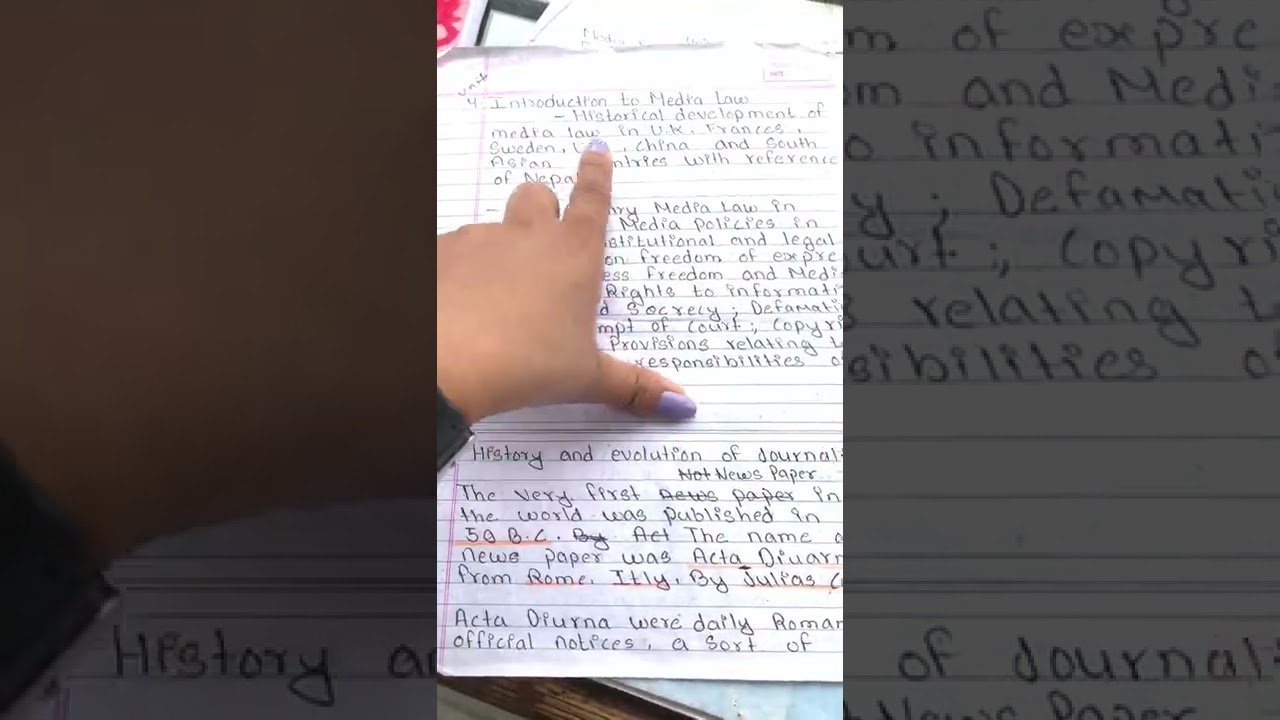 Media
DATE
Unit
4. Introduction to Media Law
- Historical development of
media law in U.K. Frances,
Sweden, , China and South
Asian ntries with reference
of Nepal
- ry Media Law in
Media policies in
stitutional and legal
on freedom of expre
ess freedom and Medi
Rights to informati
d Socrecy ; Defamati
mpt of court ; Copyri
Provisions relating t
responsibilities o
History and evolution of Journali
Not News Paper
The very first News paper in
the world was published in
59 B.C. By Act The name o
news paper was Acta Diuarn
from Rome, Itly, By Julias
Acta Diurna were daily Roman
official notices, a sort of